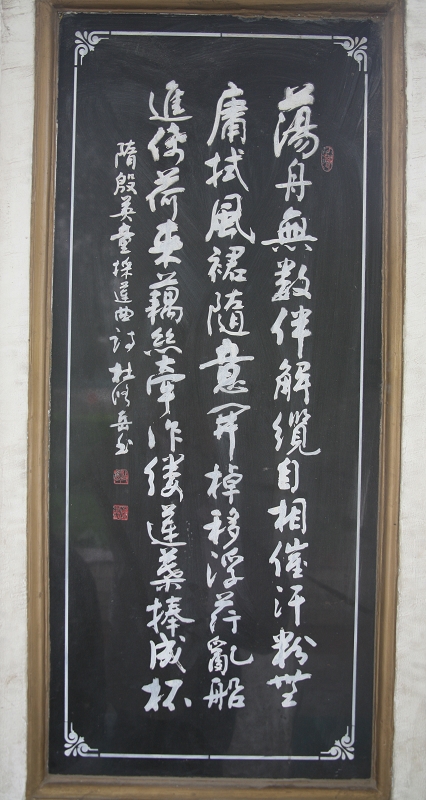 蕩舟無數伴解纜自相催汗粉無
庸拭風裙隨意開棹移浮荇亂船
進倚荷來藕絲牽作縷蓮葉捧成杯
隋殷英童採蓮曲詩杜